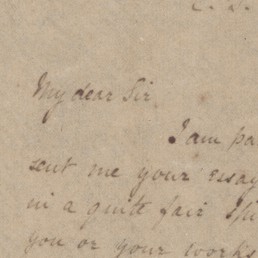 My dear Sir
I am pa
sent me your essay
in a quite fair
you or your works